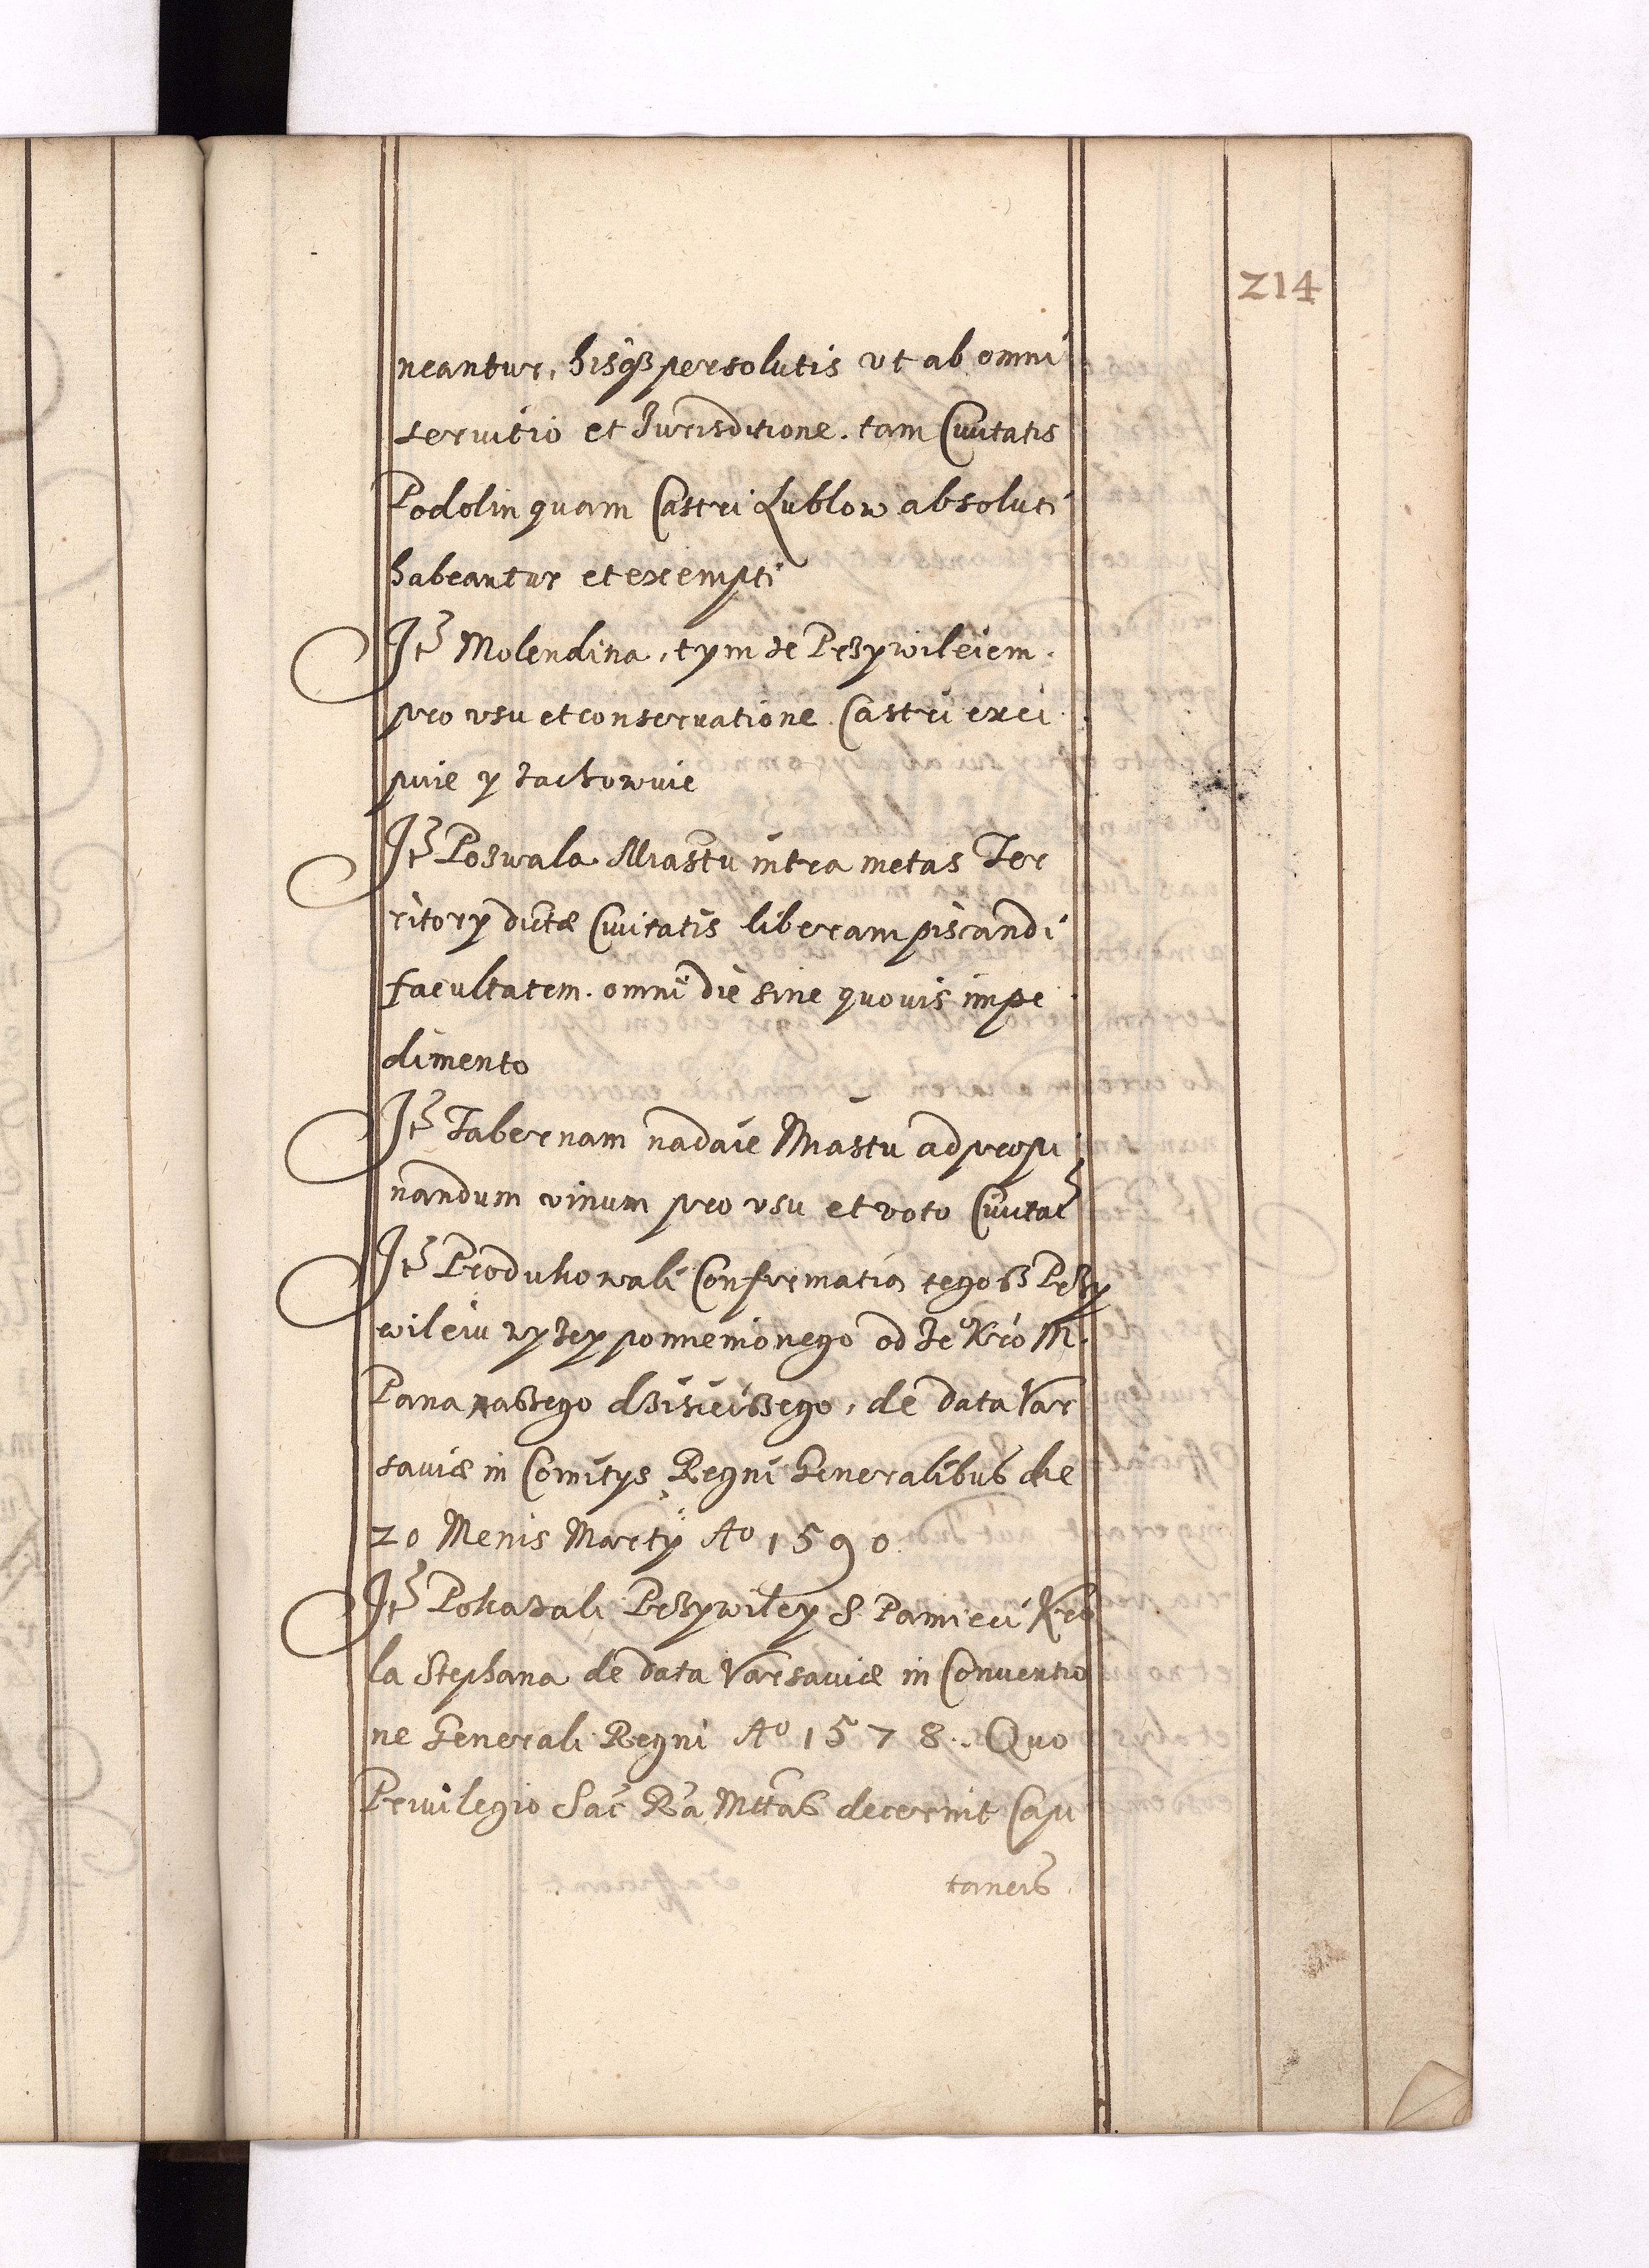 214
neantur, hisqz persolutis vt ab omni
servitio et Iurisditione. tam Civitatis
Podolin quam Castri Lublow absoluti
habeantur et exempti
Itē Molendina, tym ze Przywileiem.
pro vsu et conservatione Castri exci
puie y zachowuie
Itē Pozwala Miastu intra metas Ter
ritory dictæ Civitatis liberam piscandi
facultatem. omni die sine quovis impe
dimento
Itē Tabernam nadaie Miastu ad propi
nandum vinum pro vsu et voto Civitat
Itē Produkowali Confirmatia tegosz Przy
wileiu wyżey pomienionego od Je° Kró M.
Pana naszego dzisieiszego, de data Var
saviæ in Comitys Regni Generalibus die
20 Mensis Martÿ A° 1590
Itē Pokazali Przywiley S. Pamieci Kró
la Stephana de data Varsaviæ in Conventio
ne Generali Regni A° 1578. Quo
Privilegio Sac Ra Mttas decernit Capi
taneis.